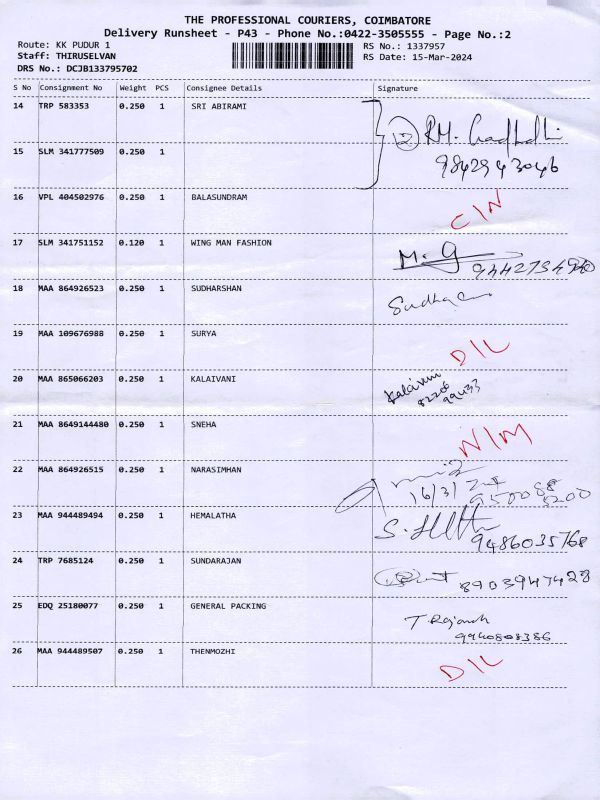 THE PROFESSIONAL COURIERS, COIMBATORE
Delivery Runsheet - P43 - Phone No.:0422-3505555 - Page No.:2
Route: KK PUDUR 1 RS No.: 1337957
Staff: THIRUSELVAN RS Date: 15-Mar-2024
DRS No.: DCJB133795702
S No Consignment No Weight PCS Consignee Details Signature
14 TRP 583353 0.250 1 SRI ABIRAMI
15 SLM 341777509 0.250 1
9842943046
16 VPL 404502976 0.250 1 BALASUNDRAM C/N
17 SLM 341751152 0.120 1 WING MAN FASHION M.G
18 MAA 864926523 0.250 1 SUDHARSHAN
19 MAA 109676988 0.250 1 SURYA D/L
20 MAA 865066203 0.250 1 KALAIVANI
21 MAA 8649144480 0.250 1 SNEHA N/M
22 MAA 864926515 0.250 1 NARASIMHAN 16/3/
23 MAA 944489494 0.250 1 HEMALATHA 9486035768
24 TRP 7685124 0.250 1 SUNDARAJAN 8903947428
25 EDQ 25180077 0.250 1 GENERAL PACKING
9940808386
26 MAA 944489507 0.250 1 THENMOZHI D/L